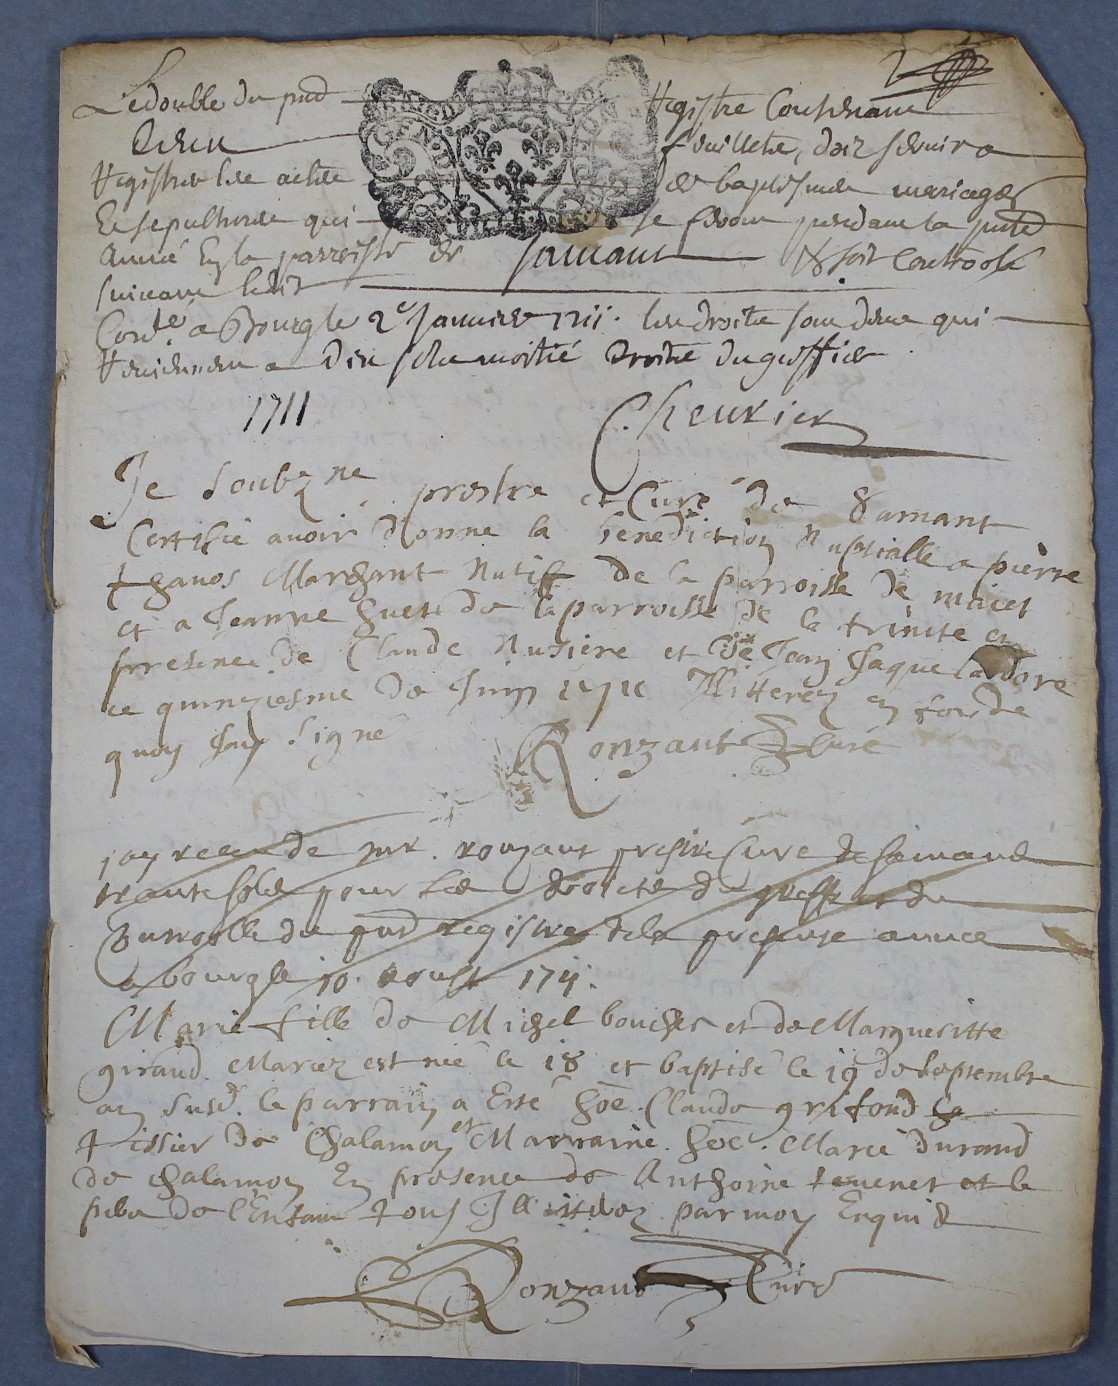 Le double du pnt Registre Contenant
deux feuillets, doit servira
Registrer les actes de baptesmes mariages
Et sepultures qui se feront pendant la pnte
Année En la parroisse de Samant & soit Controolé
suivant ledit
Con.le a Bourg le 2e Janvier 1711. les droits sont deue qui
Reviennent a dix sols moitié droits du greffier
1711
Cheurier
Je soubz ne prestre et Curé de Samant
Certifie avoir Donne la benediction Nuptialle a pierre
Marchant Natiff de la parroisse de
et a Jeanne huet de la parroisse de la trinite et
presence de Claude Nusiere et de Jean Jaque
ce quinziesme de Juin 1711 Illitterez en foy de
quoy Jay signé Ronzaut Curé
jay receu de mr. ronzaut prestre Cure de samant
trante sols pour les droits du greff et du
Controlle du pnt registre de la presente annee
a bourg le 10. aoust 1711.
Marie fille de Michel boucher et de Marguesitte
giraud Mariez est née le 18 et baptisé le 19 de septembre
an susd. le parrain a Esté hoe. Claude grifond
tissier de Chalamon et Marraine hoe. Marie Durand
de Chalamon En presence de Anthoine temenet et le
pere de l'Enfant tous Illiterez par moy Enquis
Ronzaut Curé